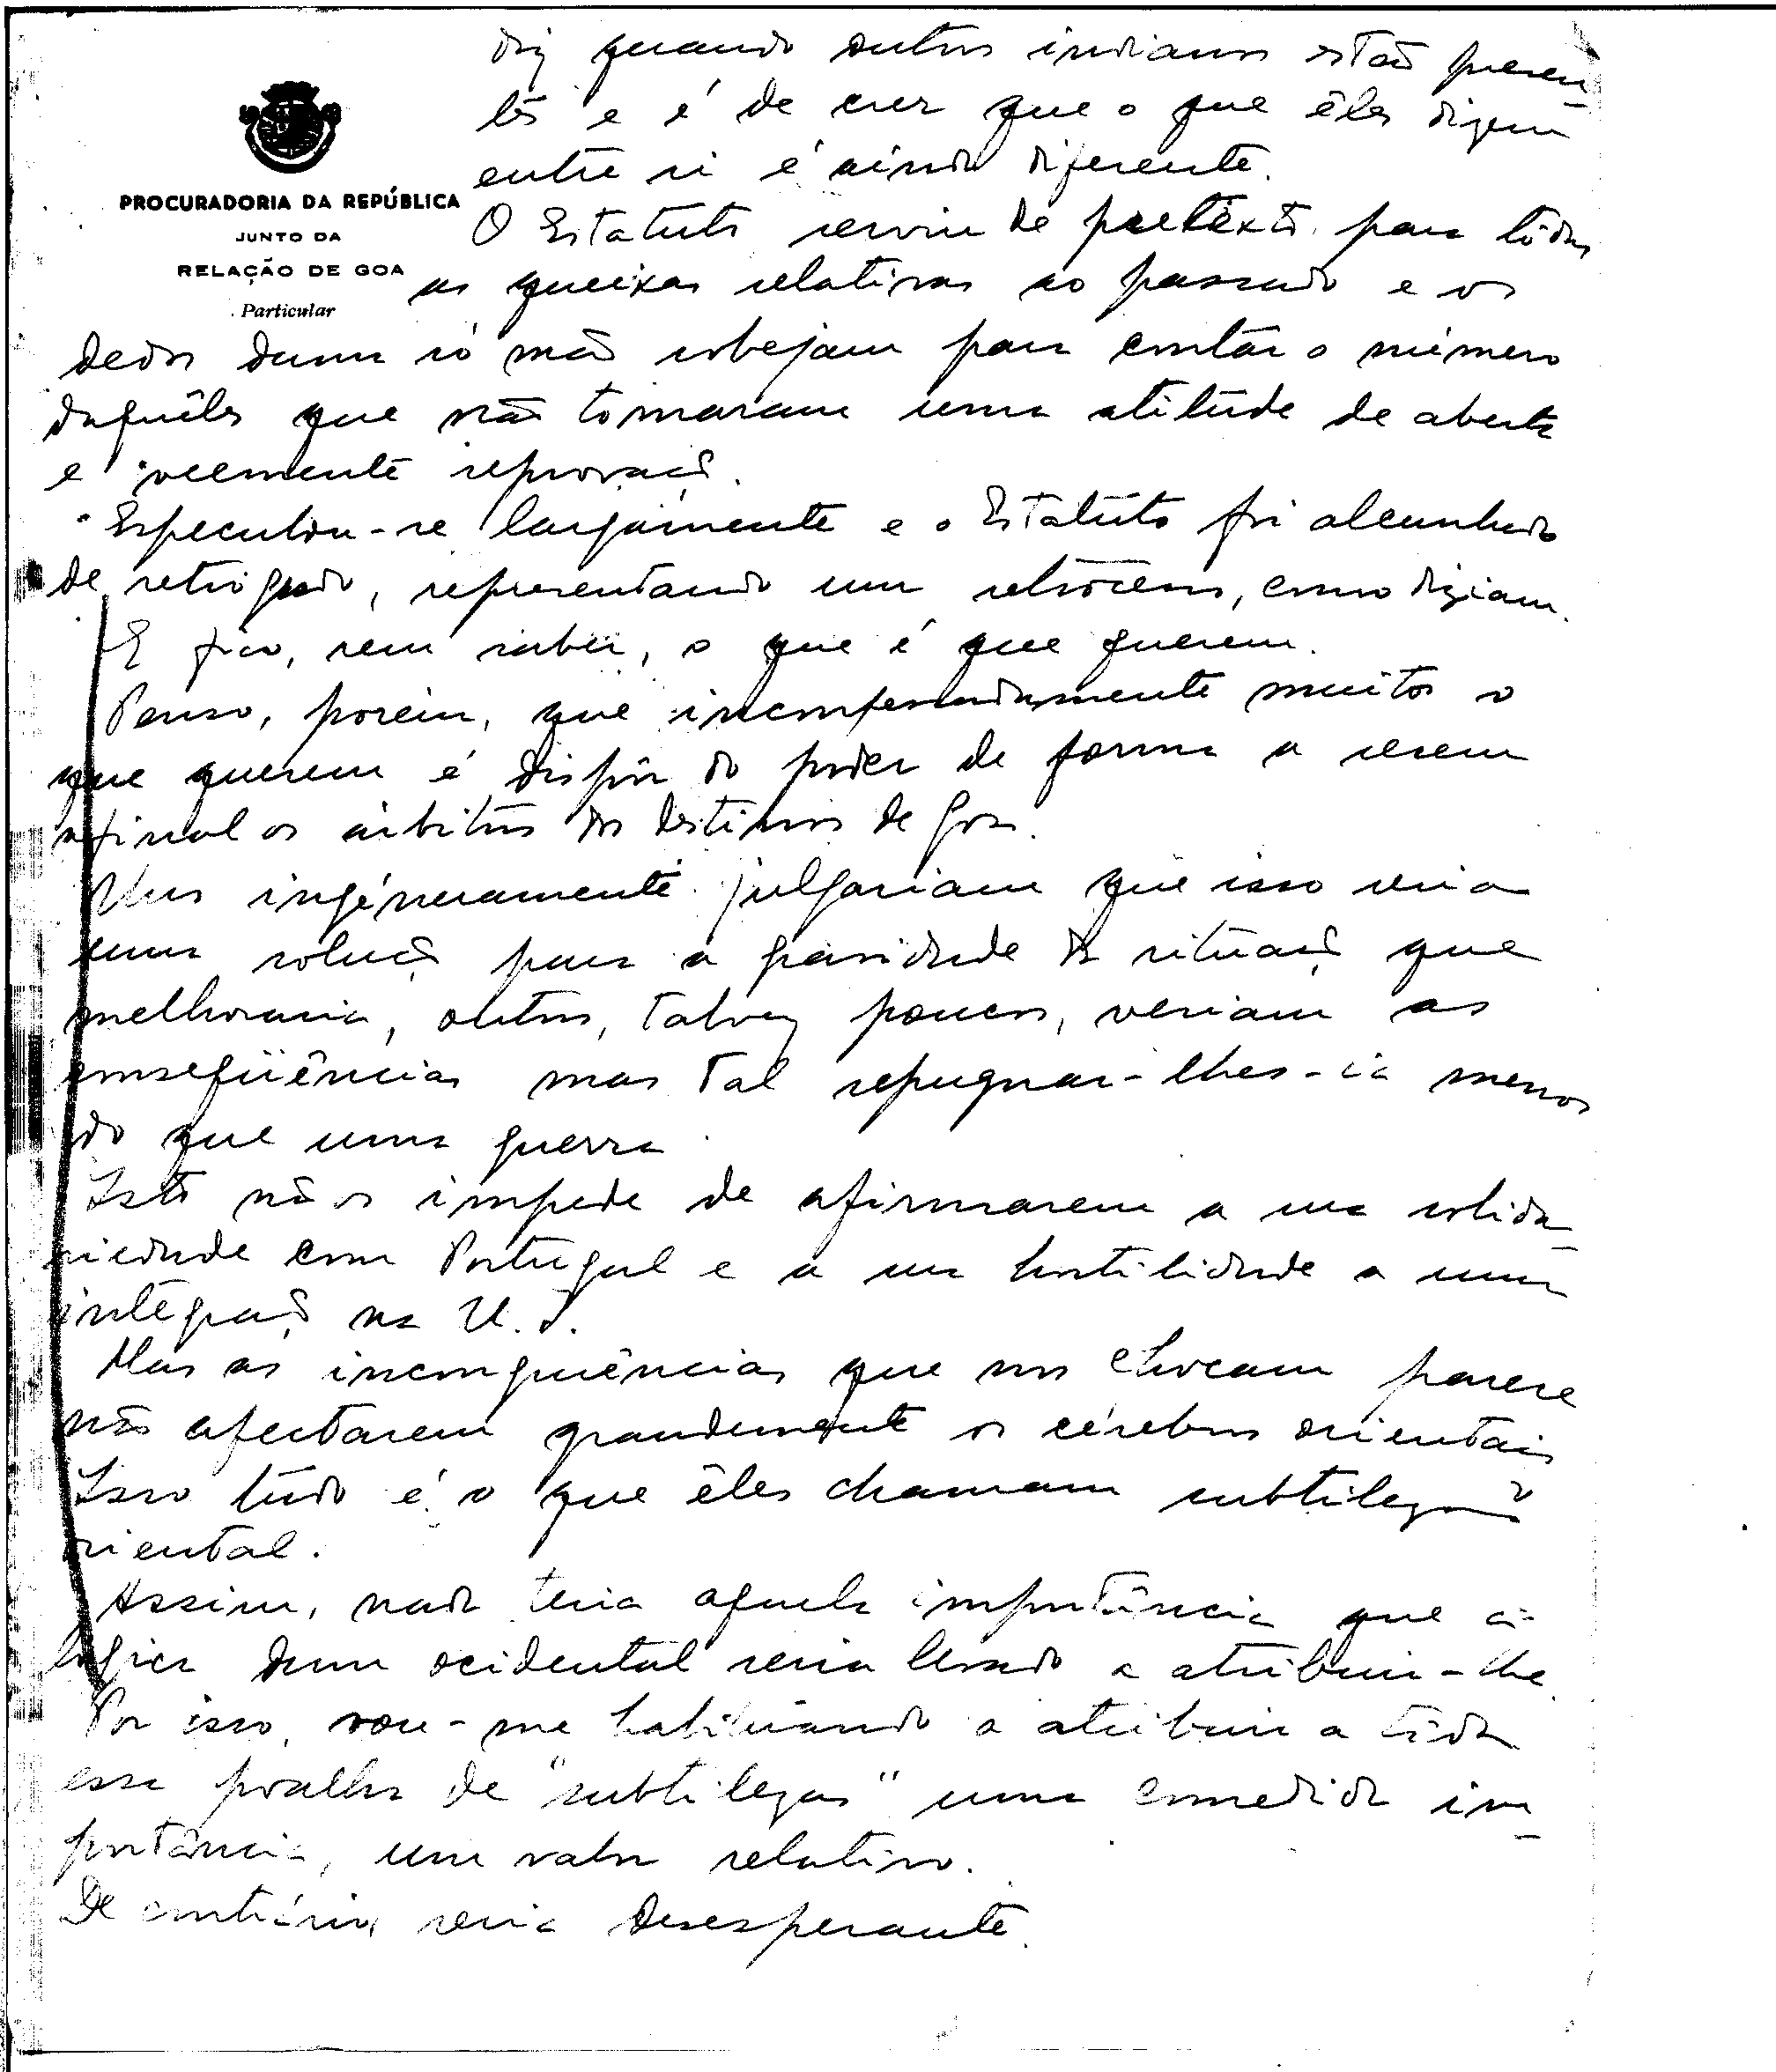 diz quando outros indianos estão presen-
tes e é de crer que o que êles dizem
entre si é ainda diferente.
PROCURADORIA DA REPÚBLICA
JUNTO DA
RELAÇÃO DE GOA
Particular
O Estatuto serviu de pretexto para tôdas
as queixas relativas ao passado e os
dedos duma só mão sobejam para contar o número
daquêles que não tomaram uma atitude de aberta
e veemente reprovação.
Especulou-se largamente e o Estatuto foi alcunhado
de retrógrado, representando um retrocesso, como diziam.
E fico, sem saber, o que é que querem.
Penso, porém, que inconfessadamente muitos o
que querem é dispôr do poder de forma a serem
afinal os árbitros dos destinos de Goa.
Uns ingénuamente julgariam que isso seria
uma solução para a gravidade da situação que
melhoraria, outros, talvez poucos, veriam as
conseqüências mas tal repugnar-lhes-ia menos
do que uma guerra.
Isto não os impede de afirmarem a sua solida-
riedade com Portugal e a sua hostilidade a uma
integração na U. I.
Mas as incongruências que nos chocam parece
não afectarem grandemente os cérebros orientais
Isso tudo é o que êles chamam subtileza
oriental.
Assim, nada teria aquela importância que a
lógica dum ocidental seria levado a atribuir-lhe.
Por isso, vou-me habituando a atribuir a tôda
essa poalha de "subtilezas" uma comedida im-
portância, um valor relativo.
De contrário, seria desesperante.